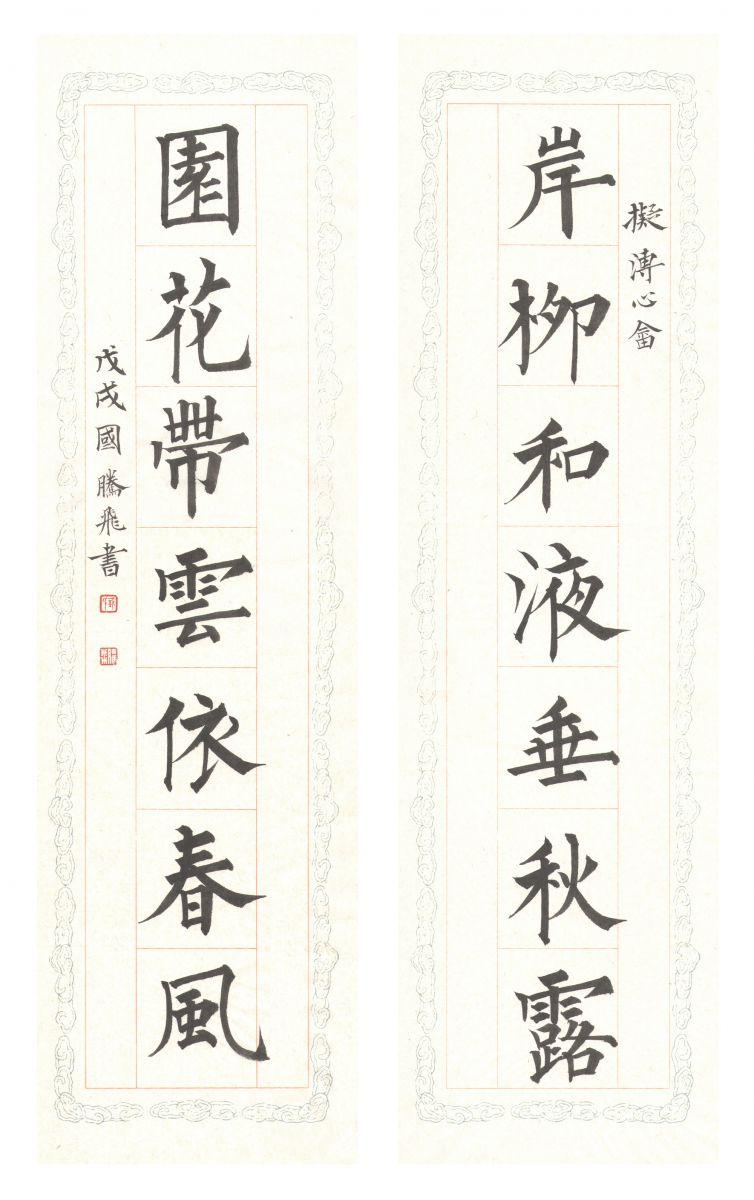 擬溥心畬
岸柳和液垂秋露
園花帶雲依春風
戊戌國騰飛書